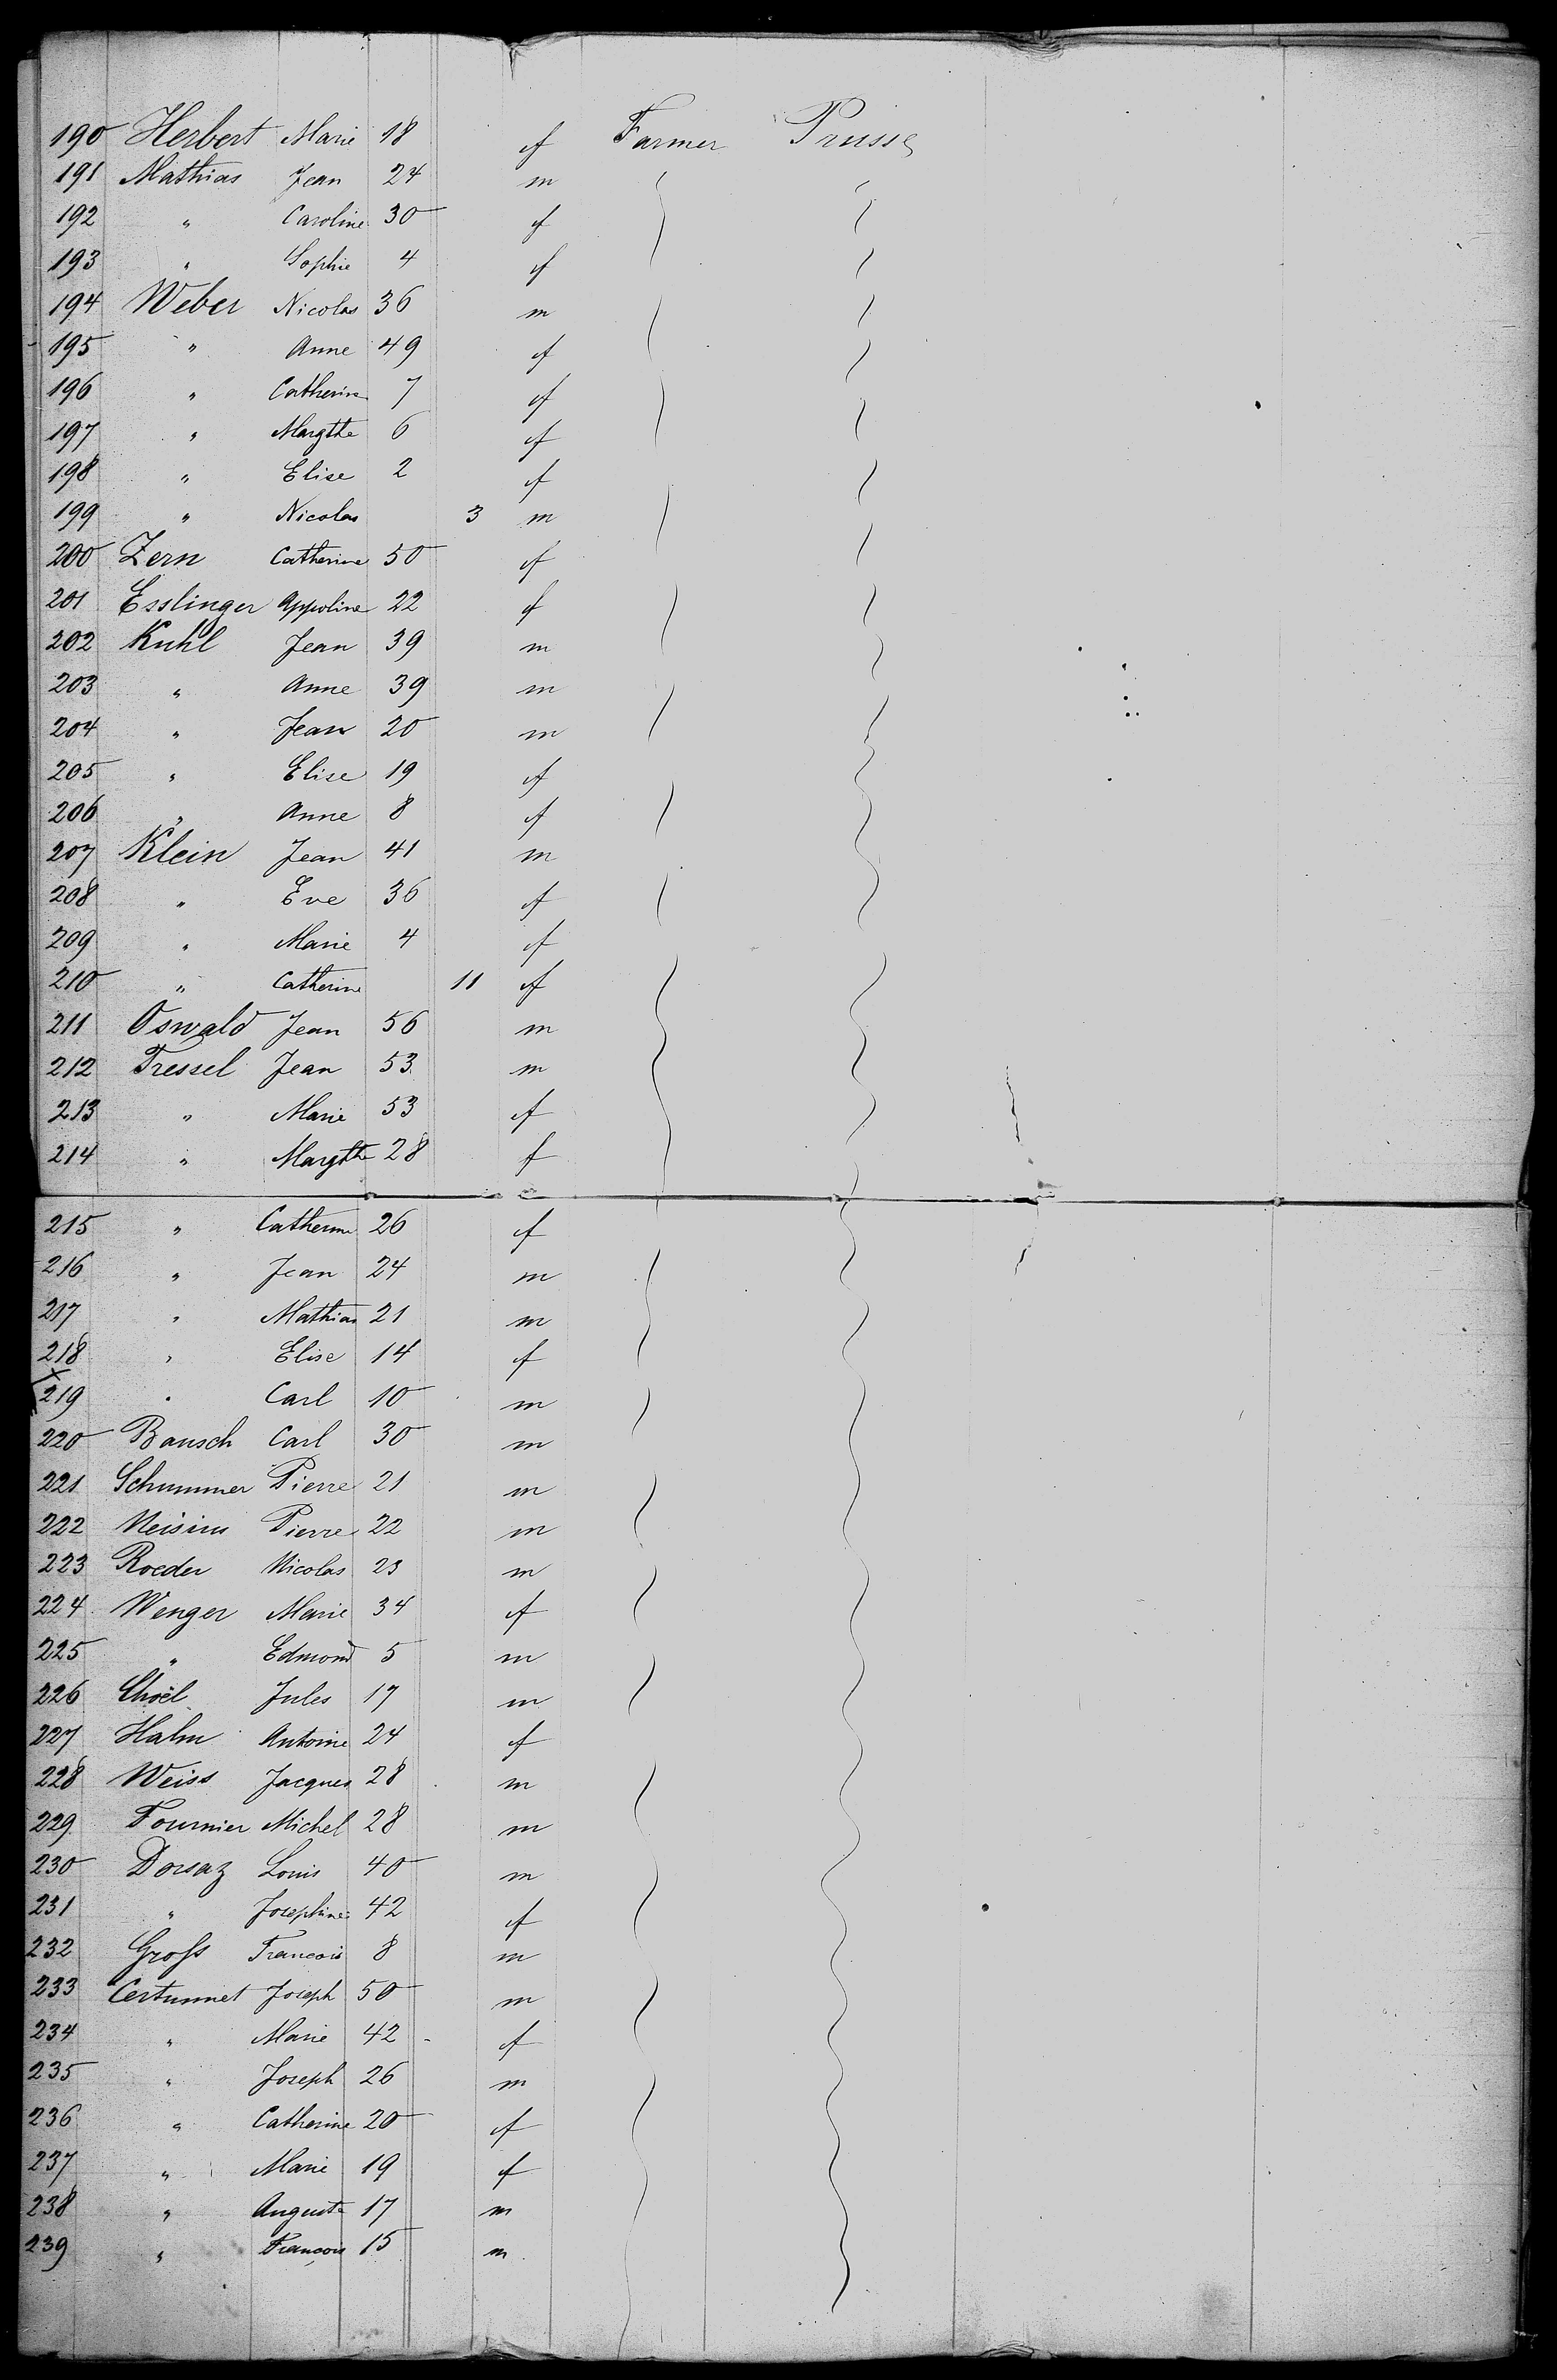 190 Herbert Marie 18 f Farmer Prusse
191 Mathias Jean 24 m
192 " Caroline 30 f
193 " Sophie 4 f
194 Weber Nicolas 36 m
195 " Anne 49 f
196 " Catherine 7 f
197 " Margthe 6 f
198 " Elise 2 f
199 " Nicolas 3 m
200 Zern Catherine 50 f
201 Esslinger Appoline 22 f
202 Kuhl Jean 39 m
203 " Anne 39 m
204 " Jean 20 m
205 " Elise 19 f
206 " Anne 8 f
207 Klein Jean 41 m
208 " Eve 36 f
209 " Marie 4 f
210 " Catherine 11 f
211 Oswald Jean 56 m
212 Tressel Jean 53 m
213 " Marie 53 f
214 " Margthe 28 f
215 " Catherine 26 f
216 " Jean 24 m
217 " Mathias 21 m
218 " Elise 14 f
x 219 " Carl 10 m
220 Bausch Carl 30 m
221 Schummer Pierre 21 m
222 Meisius Pierre 22 m
223 Roeder Nicolas 23 m
224 Wenger Marie 34 f
225 " Edmond 5 m
226 Jules 17 m
227 Halm Antoine 24 f
228 Weiss Jacques 28 m
229 Fournier Michel 28 m
230 Dorsaz Louis 40 m
231 " Josephine 42 f
232 Groſs Francois 8 m
233 Joseph 50 m
234 " Marie 42 f
235 " Joseph 26 m
236 " Catherine 20 f
237 " Marie 19 f
238 " Auguste 17 m
239 " François 15 m